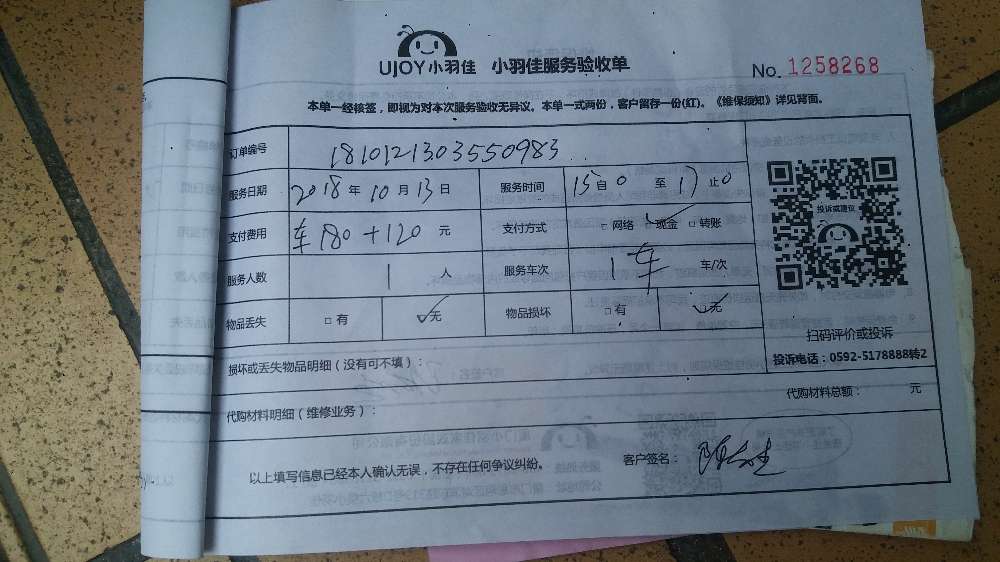 UJOY小羽佳 小羽佳服务验收单
No. 1258268
本单一经核签，即视为对本次服务验收无异议。本单一式两份，客户留存一份(红)。《维保须知》详见背面。
订单编号 1810121303550983
服务日期 2018年10月13日 服务时间 15自0至17止0
支付费用 车180+120元 支付方式 □网络 ☑现金 □转账
服务人数 1人 服务车次 1车 车/次
物品丢失 □有 ☑无 物品损坏 □有 ☑无
投诉或建议
扫码评价或投诉
投诉电话：0592-5178888转2
损坏或丢失物品明细（没有可不填）：
代购材料明细（维修业务）： 代购材料总额： 元
以上填写信息已经本人确认无误，不存在任何争议纠纷。 客户签名：